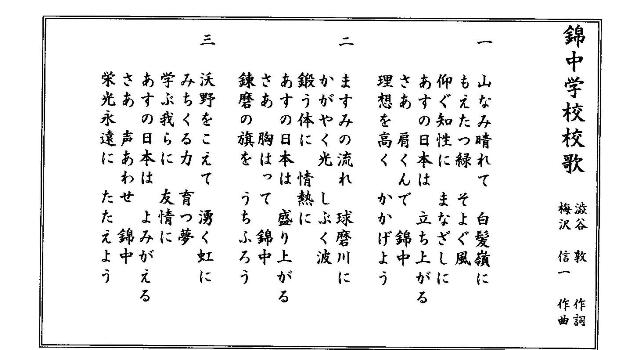 錦中学校校歌
澁谷 敦 作詞
梅沢 信一 作曲
一
山なみ晴れて 白髪嶺に
もえたつ緑 そよぐ風
仰ぐ知性に まなざしに
あすの日本は 立ち上がる
さあ 肩くんで 錦中
理想を高く かかげよう
二
ますみの流れ 球磨川に
かがやく光 しぶく波
鍛う体に 情熱に
あすの日本は 盛り上がる
さあ 胸はって 錦中
錬磨の旗を うちふろう
三
沃野をこえて 湧く虹に
みちくる力 育つ夢
学ぶ我らに 友情に
あすの日本は よみがえる
さあ 声あわせ 錦中
栄光永遠に たたえよう